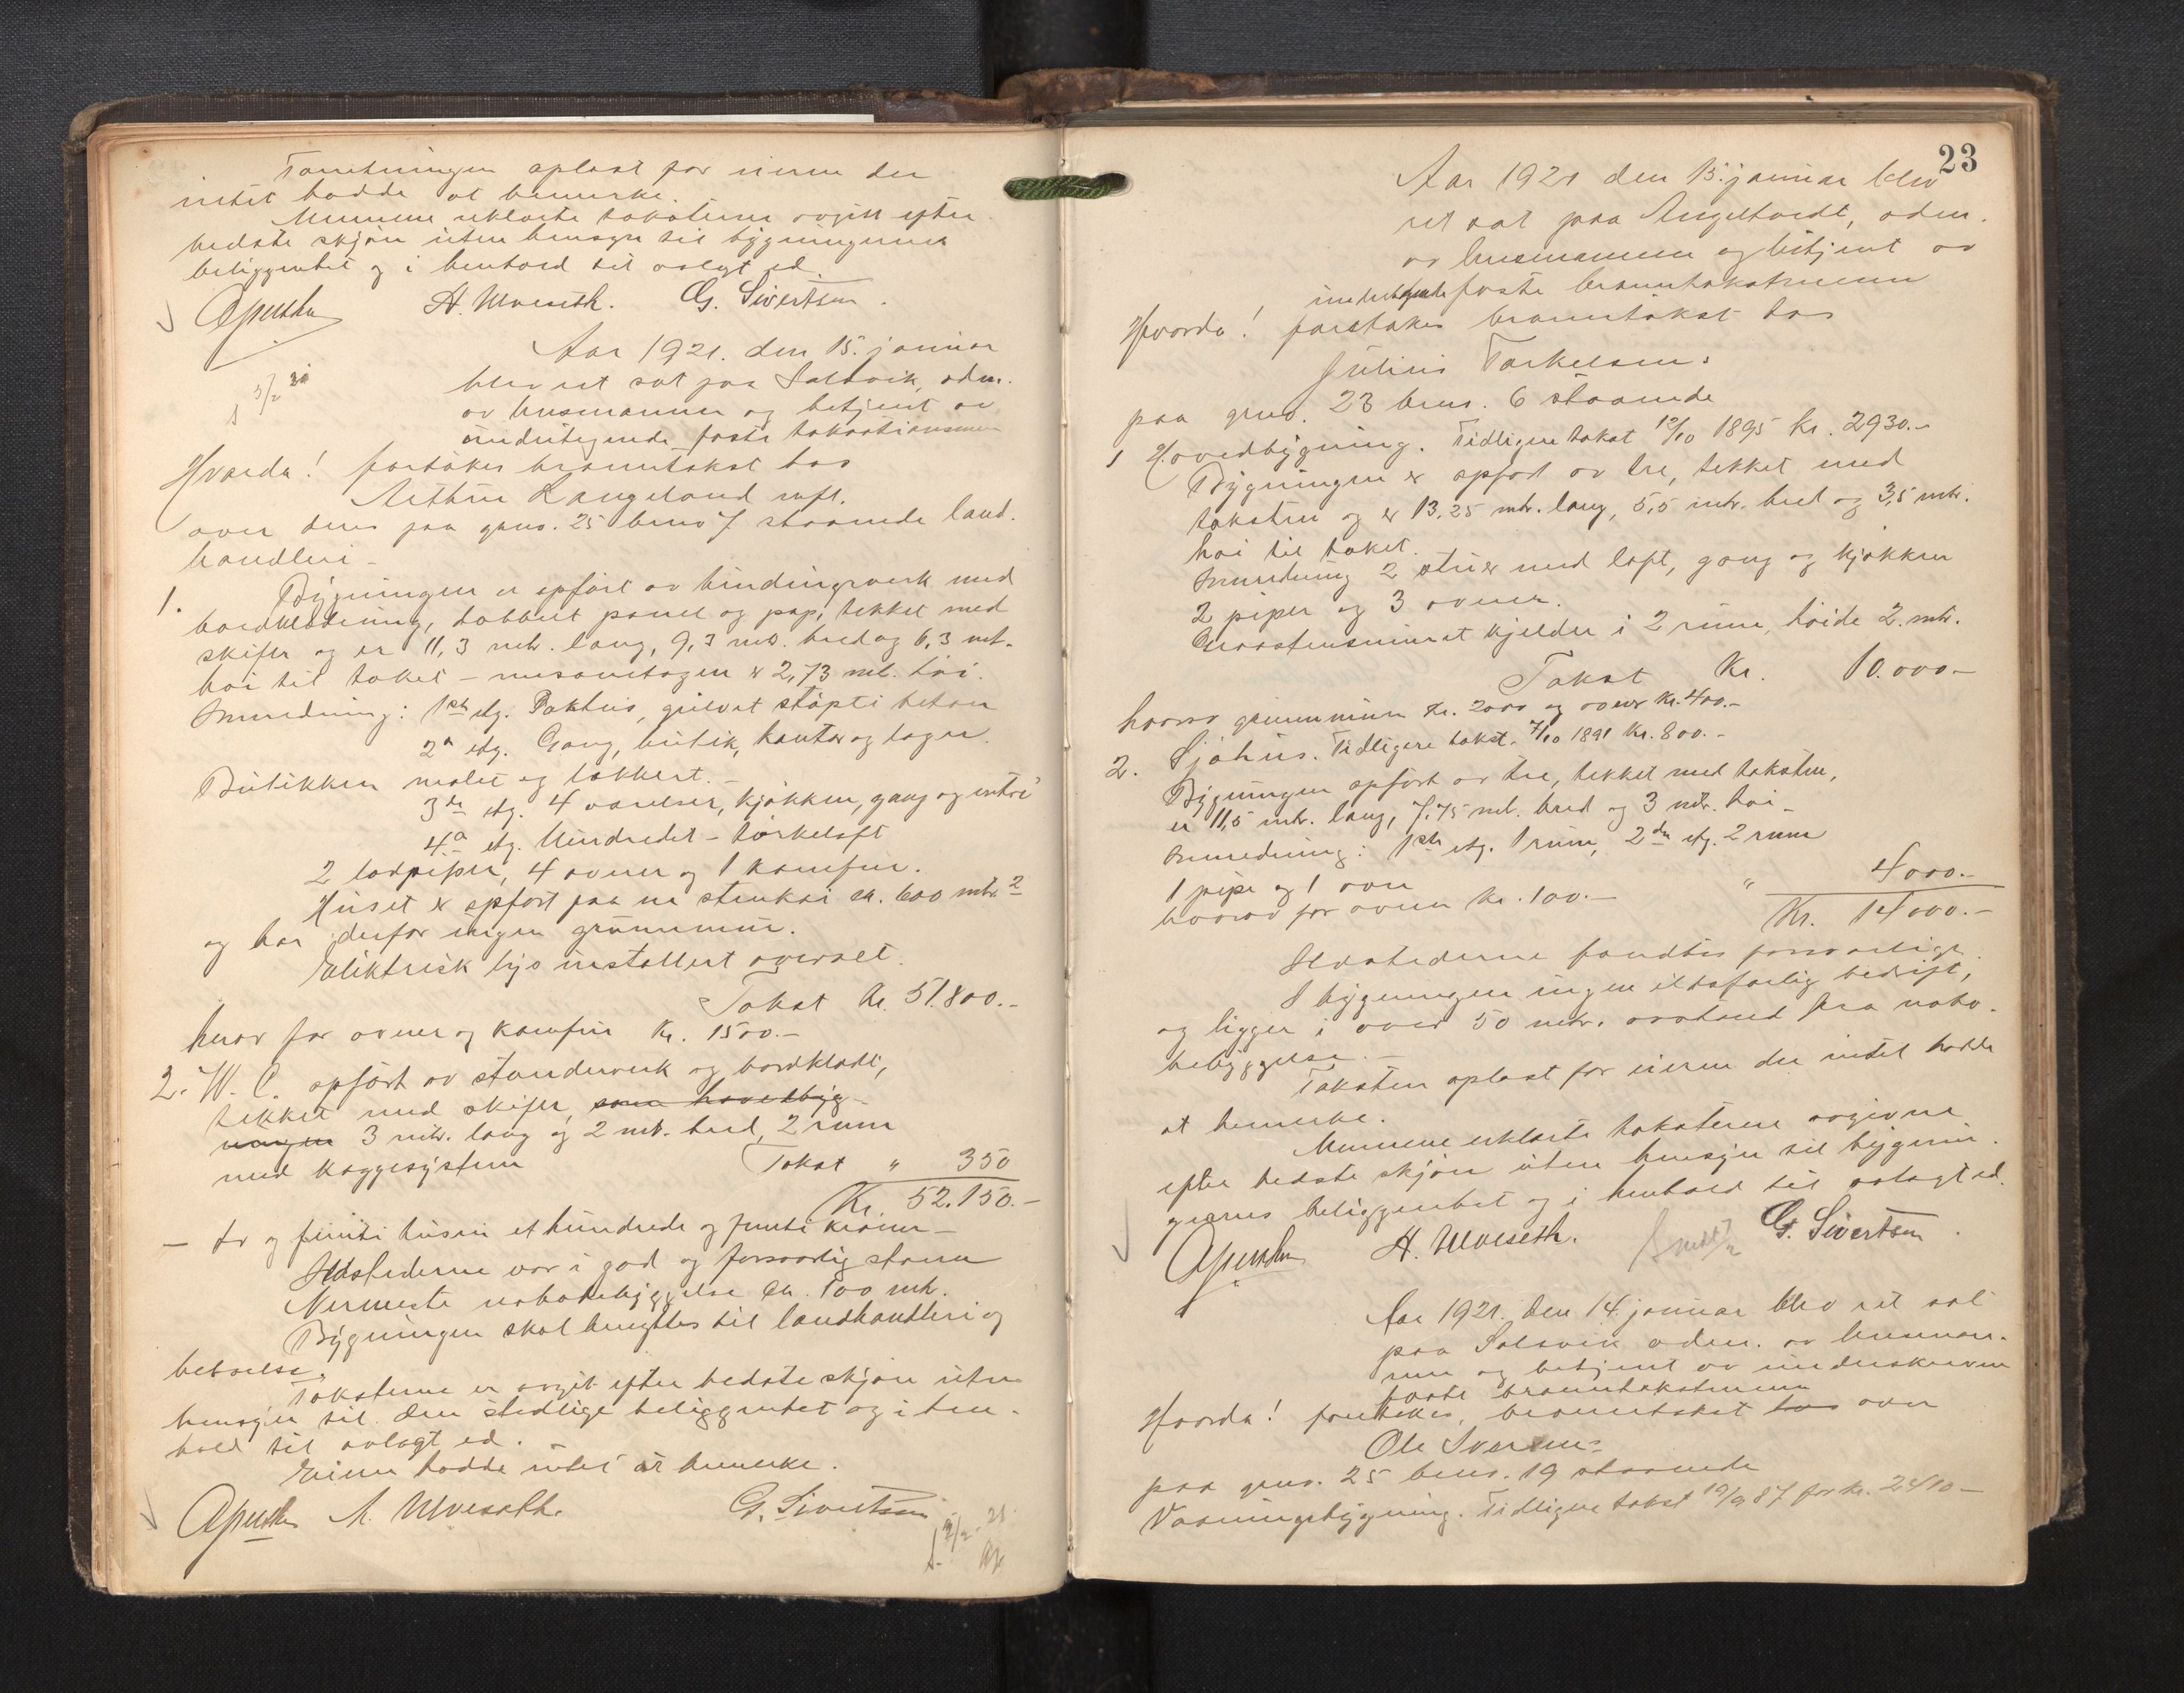 Forretningen oplæst for eieren der
intet hadde at bemerke.
Mennene erklærte taksterne avgit efter
bedste skjøn uten hensyn til bygningernes
beliggenhet og i henhold til avlagt ed.
A. Ulveseth. G. Sivertsen.
Aar 1921. den 15. januar
blev ret sat paa Saltvik, adm.
av lensmannen og betjent av
undertegnede faste takstationsmenn
Hvorda! foretokes branntakst hos
Arthur Langeland m fl.
over deres paa gnr. 25 bnr 7 staaende land-
handleri -
1. Bygningen er opført av bindingsverk med
bordklædning, dobbelt panel og pap, tekket med
skifer og er 11,3 mtr. lang, 9,3 mtr. bred og 6,3 mt.
høi til taket - mesanetagen er 2,73 mt. høi.
Innredning: 1ste etg. Pakhus, gulvet støpt i beton
2n etg. Gang, butik, kontor og lager.
Butikken malet og lakkert. -
3de etg. 4 værelser, kjøkken, gang og entre
4d etg. Uindredet - tørkeloft
2 lodpiper, 4 ovner og 1 komfur.
Huset er opført paa ne stenkai ca. 600 mtr 2
og har derfor ingen grunnmur.
Elektrisk lys installert overalt.
Takst kr. 51.800.-
herav for ovner og komfur Kr. 1500.-
2. W. C. opført av stenderverk og bordklædt,
tekket med skifer, som hovedbyg-
ningen 3 mtr. lang og 2 mt. bred, 2 rum
med kaggesystem Takst " 350
Kr. 52.150.-
- to og femti tusen et hundrede og femti kroner -
Ildstederne var i god og forsvarlig stann
Nermeste nabobebyggelse ca. 100 mtr.
Bygningen skal benyttes til landhandleri og
beboelse.
Taksterne er avgit efter bedste skjøn uten
hensyn til den stedlige beliggenhet og i hen-
hold til avlagt ed.
Eieren hadde intet at bemerke.
A. Ulveseth. G. Sivertsen
23
Aar 1921 den 15. januar blev
ret sat paa Angeltvedt, adm.
av lensmannen og betjent av
undertegnede faste branntakstmenn
Hvorda! foretokes branntakst hos
Julius Torkelsen:
paa gnr. 23 bnr. 6 staaende
1 Hovedbygning. Tidligere takst 12/10 1895 Kr. 2930.-
Bygningen er opført av tre, tekket med
taksten og er 13,25 mtr. lang, 5,5 mtr. bred og 3,5 mtr.
høi til taket.
Innredning 2 stuer med loft, gang og kjøkken
2 piper og 3 ovner.
Graastensmuret kjelder i 2 rum, høide 2. mtr.
Takst Kr. 10.000-
hvorav grunnmuren kr. 2000 og ovner kr. 400.-
2. Sjøhus. Tidligere takst. 7/10 1891 Kr. 800.-
Bygningen opført av tre, tekket med taksten,
er 11,5 mtr. lang, 7.75 mt. bred og 3 mtr. høi -
Innredning: 1ste etg. 1 rum, 2den etg. 2 rum
1 pipe og 1 ovn " 4000.-
hvorav for ovnen kr. 100.- Kr. 14000.-
Ildstederne fandtes forsvarlige.
I bygningen ingen ildsfarlig bedrift,
og ligger i over 50 mtr. avstand fra nabo-
bebyggelse. -
Taksten oplæst for eieren der intet hadde
at bemerke.
Mennene erklærte taksterne avgivne
efter bedste skjøn uten hensyn til bygnin-
gernes beliggenhet og i henhold til avlagt ed.
A. Ulveseth. G. Sivertsen.
Aar 1921. den 14. januar blev ret sat
paa Solsvik adm. av lensman-
nen og betjent av underskrevne
faste branntakstmenn
Hvorda! foretokes, branntakst hos over
Ole Iversens
paa gnr. 25 bnr. 19 staaende
Vaaningsbygning. Tidligere takst 19/9 87 for kr. 2410-